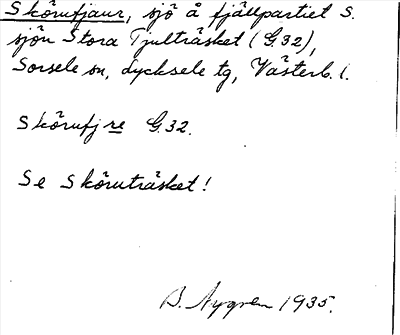 Skörufjaur, sjö å fjällpartiet S.
sjön Stora Tjulträsket (G.32),
Sorsele sn, Lycksele tg, Västerb. l.
Skörufjre G.32.
Se Sköruträsket!
B. Nygren 1935.